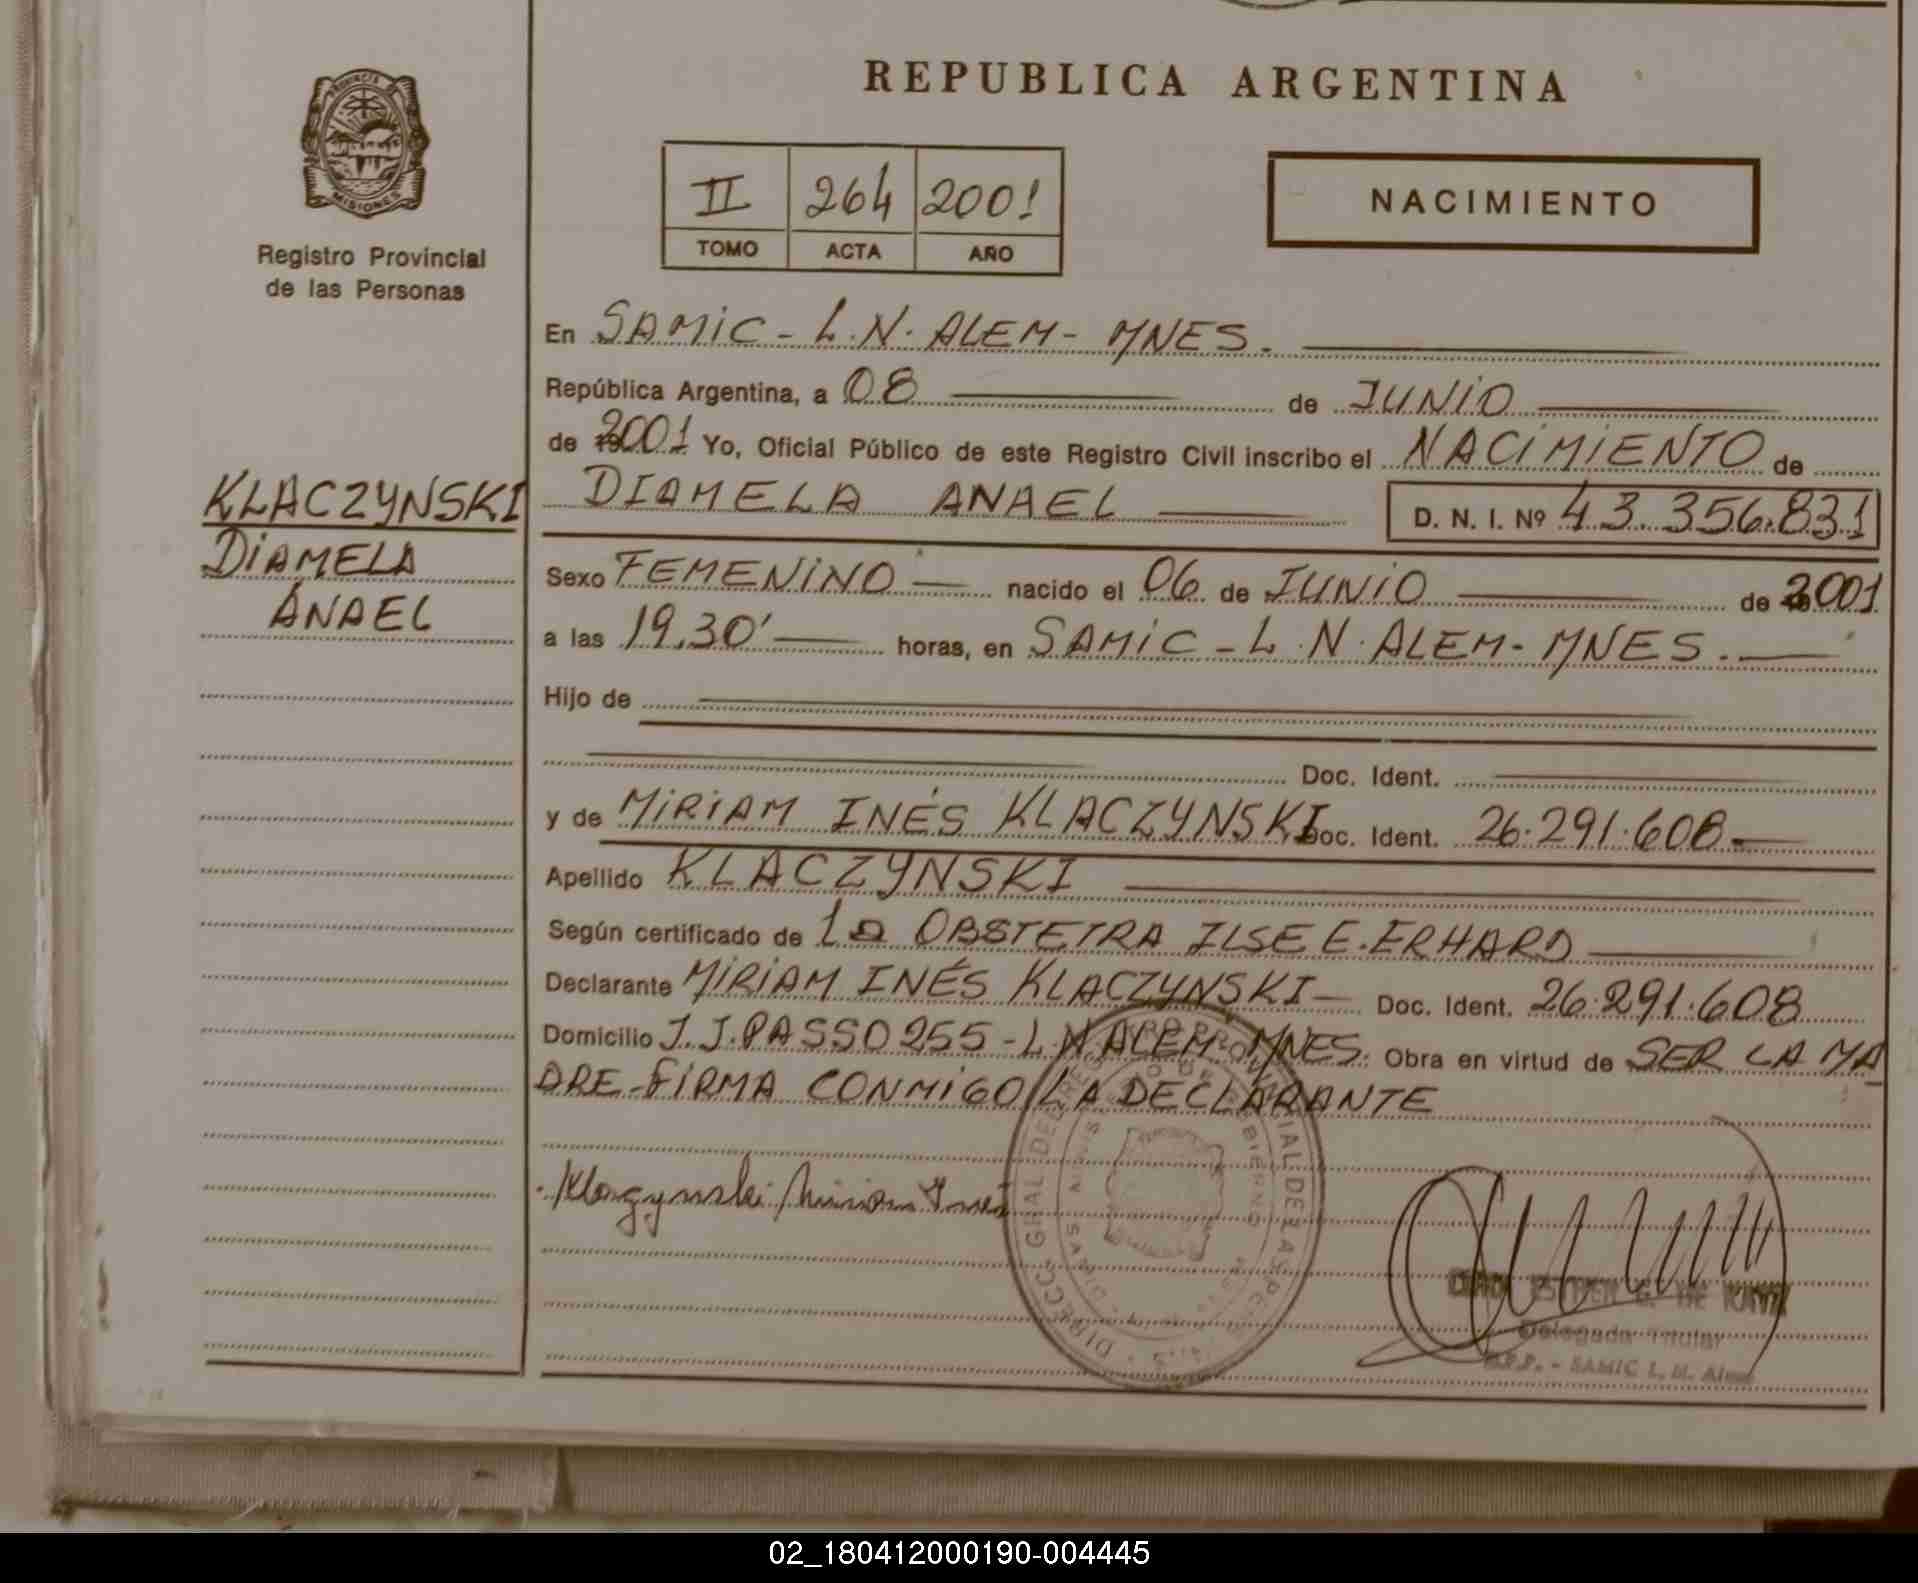 REPUBLICA ARGENTINA
PROVINCIA DE
MISIONES
Registro Provincial
de las Personas
II 264 2001
TOMO ACTA AÑO
NACIMIENTO
KLACZYNSKI
DIAMELA
ANAEL
En SAMIC - L.N. ALEM - MNES.
República Argentina, a 08 de JUNIO
de 2001 Yo, Oficial Público de este Registro Civil inscribo el NACIMIENTO de
DIAMELA ANAEL D. N. I. Nº 43.356.831
Sexo FEMENINO nacido el 06 de JUNIO de 2001
a las 19.30' horas, en SAMIC - L.N. ALEM - MNES.
Hijo de
Doc. Ident.
y de MIRIAM INÉS KLACZYNSKI Doc. Ident. 26.291.608
Apellido KLACZYNSKI
Según certificado de la OBSTETRA ILSE E. ERHARD
Declarante MIRIAM INÉS KLACZYNSKI Doc. Ident. 26.291.608
Domicilio J.J. PASSO 255 - L N ALEM MNES. Obra en virtud de SER LA MA
DRE - FIRMA CONMIGO LA DECLARANTE
Klaczynski Miriam Ines
Delegada Titular
R.P.P. - SAMIC L. N. Alem
02_180412000190-004445